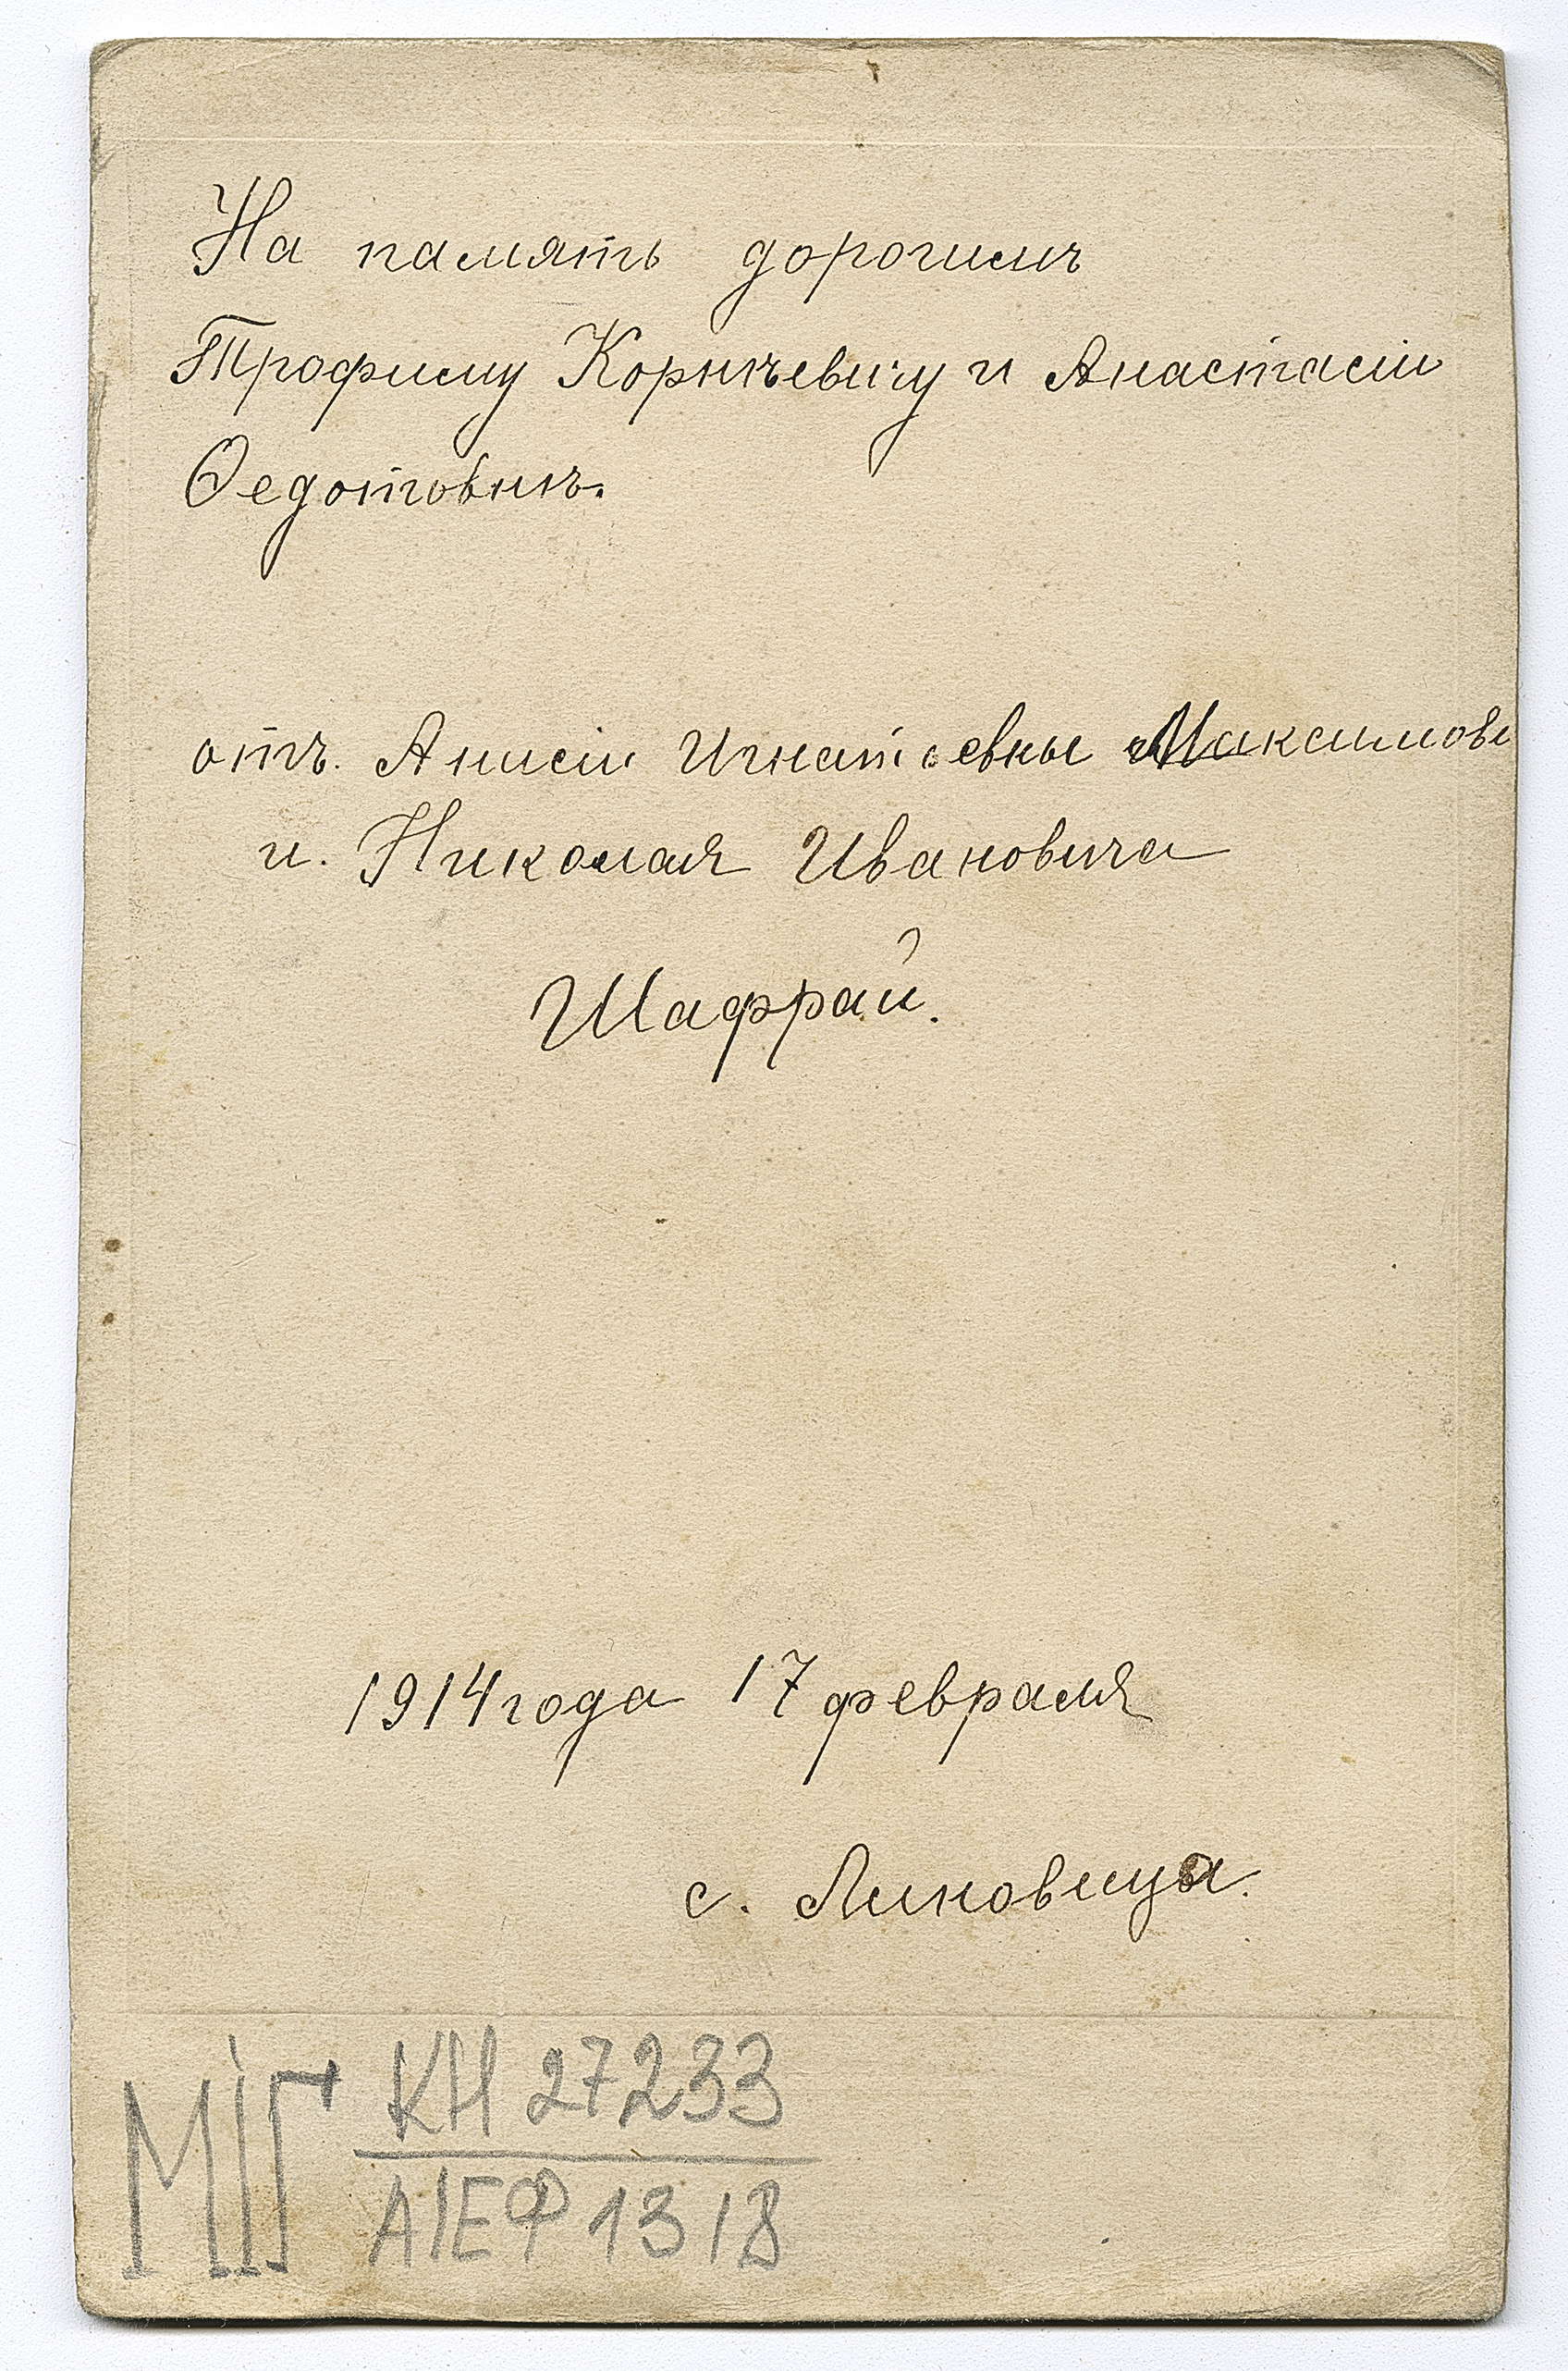 На память дорогимъ
Трофиму Корнѣевичу и Анастасіи
Ѳедотовнѣ.
отъ. Анисіи Игнатьевны Максимов
и. Николая Ивановича
Шаффрай.
1914 года 17 февраля
с. Линовица.
МІГ КН 27233
АІЕФ 1318